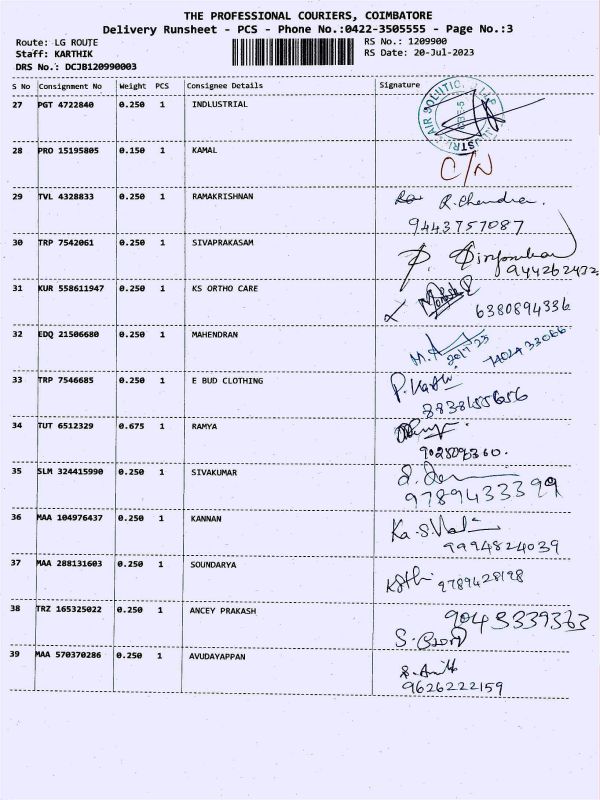 THE PROFESSIONAL COURIERS, COIMBATORE
Delivery Runsheet - PCS - Phone No.:0422-3505555 - Page No.:3
Route: LG ROUTE RS No.: 1209900
Staff: KARTHIK RS Date: 20-Jul-2023
DRS No.: DCJB120990003
S No Consignment No Weight PCS Consignee Details Signature
27 PGT 4722840 0.250 1 INDLUSTRIAL
AIR SOLUTIO
28 PRO 15195805 0.150 1 KAMAL C/N
29 TVL 4328833 0.250 1 RAMAKRISHNAN R. Chendra.
9443757087
30 TRP 7542061 0.250 1 SIVAPRAKASAM
944262432
31 KUR 558611947 0.250 1 KS ORTHO CARE
6380894336
32 EDQ 21506680 0.250 1 MAHENDRAN
33 TRP 7546685 0.250 1 E BUD CLOTHING
8838155656
34 TUT 6512329 0.675 1 RAMYA
35 SLM 324415990 0.250 1 SIVAKUMAR
9789433399
36 MAA 104976437 0.250 1 KANNAN
9994824039
37 MAA 288131603 0.250 1 SOUNDARYA
9789428198
38 TRZ 165325022 0.250 1 ANCEY PRAKASH
39 MAA 570370286 0.250 1 AVUDAYAPPAN
9626222159